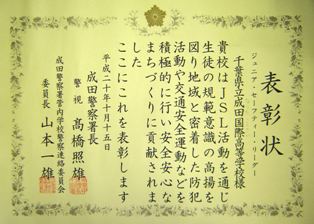 表彰状
ジュニア・セーフティー・リーダー
千葉県立成田国際高等学校様
貴校はJSL活動を通じ
生徒の規範意識の高揚を
図り地域と密着した防犯
活動や交通安全運動などを
積極的に行い安全安心な
まちづくりに貢献されま
した
ここにこれを表彰します
平成二十年十月十五日
成田警察署長
警視 髙橋照雄
成田警察署管内学校警察連絡委員会
委員長 山本一雄